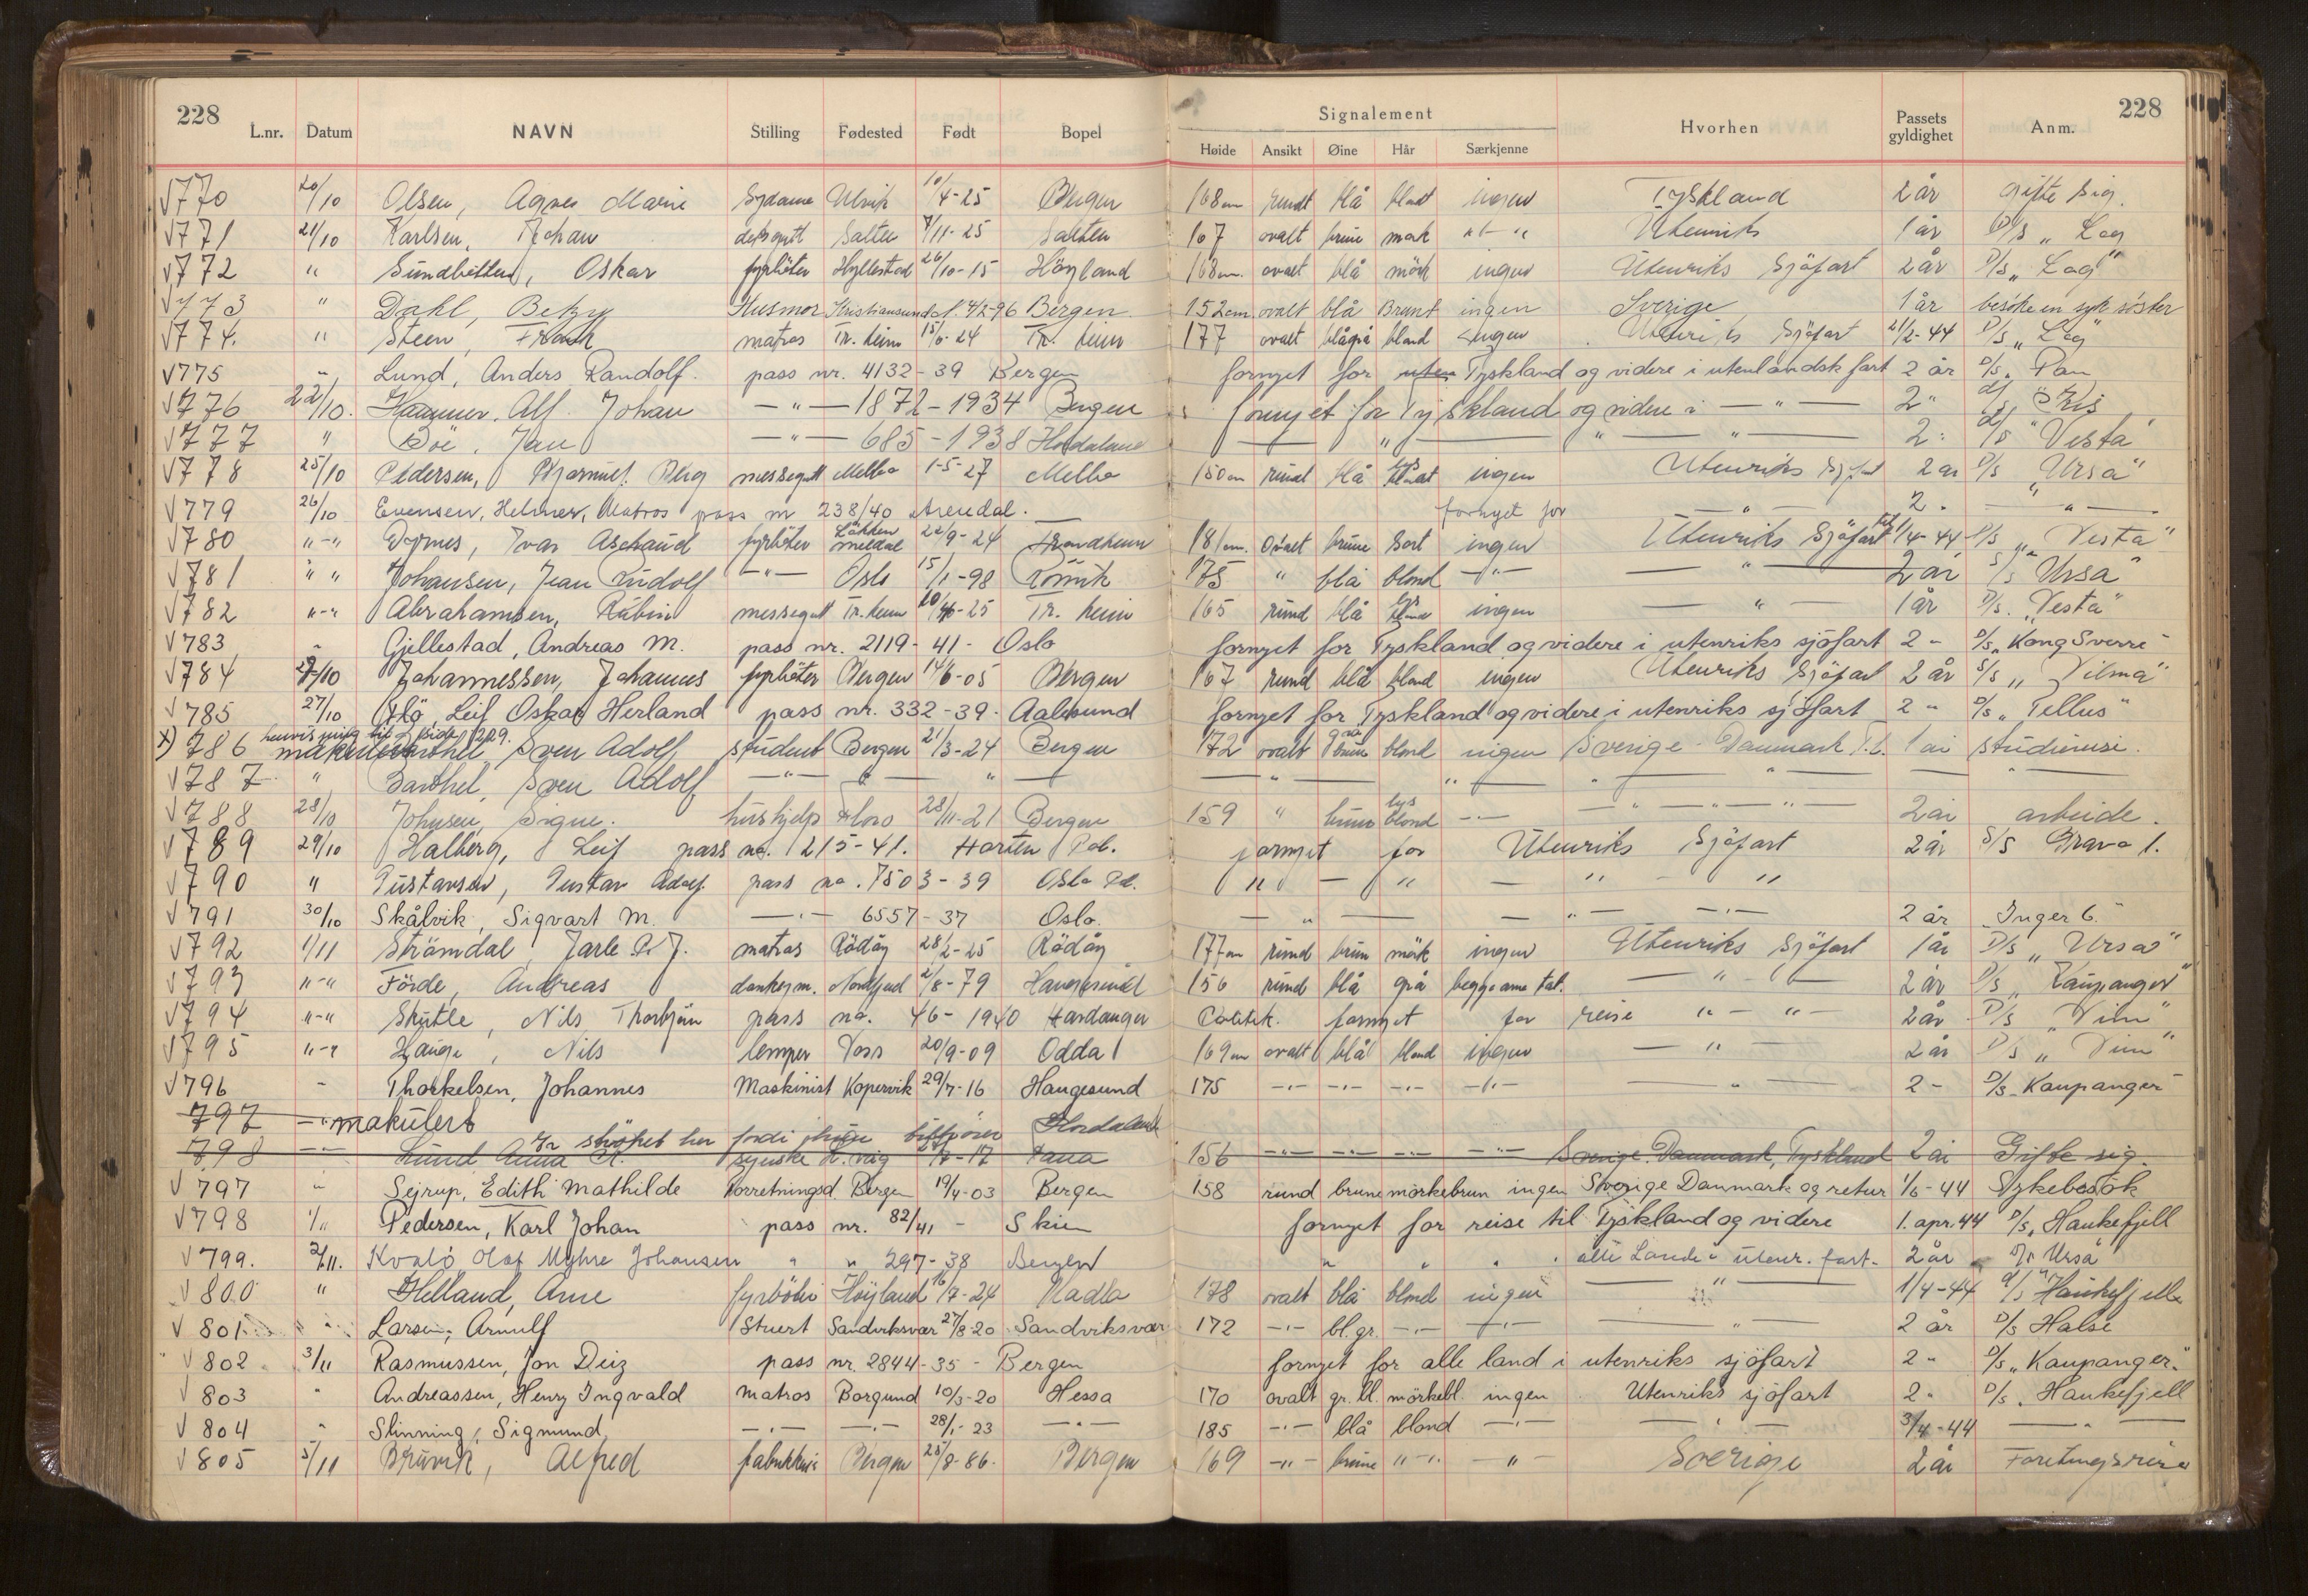 228
228
L.nr. Datum NAVN Stilling Fødested Født Bopel Signalement Hvorhen Passets gyldighet Anm.
Høide Ansikt Øine Hår Særkjenne
√770 20/10 Olsen, Agnes Marie Sydame Ulvik 10/4-25 Bergen 168cm rundt blå blondt ingen Tyskland 2 år gifte sig.
√771 21/10 Karlsen, Johan deksgutt Salten 7/11-25 Salten 167 ovalt brune mørk "-" Utenriks 1 år D/S „Log
√772 " Sundbötten, Oskar fyrböter Hyllestad 26/10-15 Höyland 168cm. ovalt blå mörk ingen Utenriks Sjöfart 2 år D/s „Log"
√773 " Dahl, Betzy Husmor Kristiansund N. 4/2-96 Bergen 152cm. ovalt blå Brunt ingen Sverige 1 år besöke en syk söster
√774. " Steen, Frank matros Tr. heim 15/6-24 Tr. heim 177 ovalt blågrå blond ingen Utenriks Sjöfart 21/2-44 D/s „Log"
√775 " Lund, Anders Randolf. pass nr. 4132-39 Bergen fornyet for uten Tyskland og videre i utenlandsk fart 2 år D/s. Pan
√776 22/10. Hammer, Alf Johan —"— 1872-1934 Bergen fornyet for Tyskland og videre i —"— 2 " d/s "Iris
√777 " Böe, Jan —"— 685-1938 Hordaland — " — " — " — 2 " d/s "Vesta"
√778 25/10 Pedersen, Bjarnulf Berg messegutt Melbo 1-5-27 Melbo 150cm rund blå lys blondt ingen Utenriks Sjöfart 2 år D/s „Ursa"
√779 26/10 Evensen, Helmer, Matros pass nr 238/40 Arendal. fornyet for —"— 2 " —"—
√780 "-" Dypnes, Ivar Aschaud fyrböter Lökken Meldal 22/9-24 Trondheim 181cm. Ovalt brune Sort ingen Utenriks Sjöfart til 1/4-44 D/s „Vesta"
√781 " " Johansen, Jean Rudolf —"— Oslo 15/1-98 Römik 175 " blå blond —"— —"— 2 år S/s "Ursa"
√782 "-" Abrahamsen, Rubin messegutt Tr. heim 20/10-25 Tr. heim 165 rund blå lys blond ingen —"— 1 år D/s. „Vesta"
√783 " Gjellestad, Andreas M. pass nr. 2119-41- Oslo fornyet for Tyskland og videre i utenriks sjöfart 2 " D/s „Kong Sverre"
√784 27/10 Johannessen, Johannes fyrböter Bergen 14/6-05 Bergen 167 rund blå blond ingen Utenriks Sjöfart 2 år S/s „Vilma"
√785 27/10 Flö, Leif Oskar Herland pass nr. 332-39- Aalesund fornyet for Tyskland og videre i utenriks sjöfart 2 " D/s „Tellus"
henvisning til side 229.
x) 786 makulert Barthel, Sven Adolf student Bergen 21/3-24 Bergen 172 ovalt grå brune blond ingen Sverige - Danmark T.b. 1 år studiereise.
√787 " Barthel, Sven Adolf —"— " — " — — " — " — " — " —
√788 28/10 Johnsen, Signe. hushjelp Floro 28/11-21 Bergen 159 " brune lys blond —"— —"—"—"— 2 år arbeide.
√789 29/10 Halberg, Leif pass no. 1215-41. Horten Pol. fornyet for Utenriks Sjöfart 2 år S/S Brava 1.
√790 " Gustavsen, Gustav Adolf. pass no. 7503-39 Oslo Pol. " — " — " - "
√791 30/10 Skålvik, Sigvart M. —"— 6557-37 Oslo. — " — — " — —"— 2 år „Inger C."
√792 1/11 Strömdal, Jarle P. J. matros Rödöy 28/2-25 Rödöy 177cm rund brun mörk ingen Utenriks Sjöfart 1 år D/s „Ursa"
√793 "-" Förde, Andreas donkeym. Nordfjord 2/8-79 Haugesund 156 rund blå grå begge arme tat. —"— 2 år D/s „Kaupanger"
√794 "-" Skutle, Nils Thorbjörn pass no. 46-1940 Hardanger Politik. fornyet for reise "-"- 2 år D/s „Vim"
√795 "-" Hauge, Nils lemper Voss 20/9-09 Odda 169cm ovalt blå blond ingen —"— 2 år D/s „Vim"
√796 " Thorkelsen, Johannes Maskinist Kopervik 29/7-16 Haugesund 175 —"— —"— —"— —"— —"— 2 - D/s. Kaupanger
797 —"— makulert
Er ströket her fordi Hordaland
798 —"— Lund Anna 7-17 Tana 156 —"— —"— —"— —"— Sverige. Danmark, Tyskland 2 år Gifte sig.
√797 " Sejrup, Edith Mathilde Forretningsd. Bergen 19/4-03 Bergen 158 rund brune mörkebrun ingen Sverige Danmark og retur 1/6-44 Sykebesök
√798 1/11 Pedersen, Karl Johan pass nr. 82/41 - Skien fornyet for reise til Tyskland og videre 1. apr. 44 D/s „Haukefjell
√799. 2/11. Kvalö Olaf Myhre Johansen " " 297-38 Bergen " " " alle Lande i utenr. fart- 2 år D/s Ursa"
√800 " Helland, Arne fyrböter Höyland 16/7-24 Madla 178 ovalt blå blond ingen —"— 1/4-44 d/s "Haukefjell
√801 " Larsen, Arnulf Stuert Sandviksvær 27/8-20 Sandviksvær 172 —"— bl.gr. —"— —"— —"— 2 år D/s Halse
√802 3/11 Rasmussen, Jon Deiz pass nr. 2844-35- Bergen fornyet for alle land i utenriks sjöfart 2 " D/s „Kaupanger."
√803 " Andreassen, Henry Ingvald Matros Borgund 10/3-20 Hessa 170 ovalt gr. bl. mörkebl. ingen Utenriks sjöfart 2 " D/s. Haukefjell
√804 " Slinning, Sigmund —"— —"— 28/1-23 —"— 185 —"— blå blond —"— —"— 3/4-44 —"—
√805 5/11 Bruvik, Alfred fabrikkeier Bergen 25/8-86. Bergen 169 —"— brune "-" —"— Sverige 2 år Foretingsreise